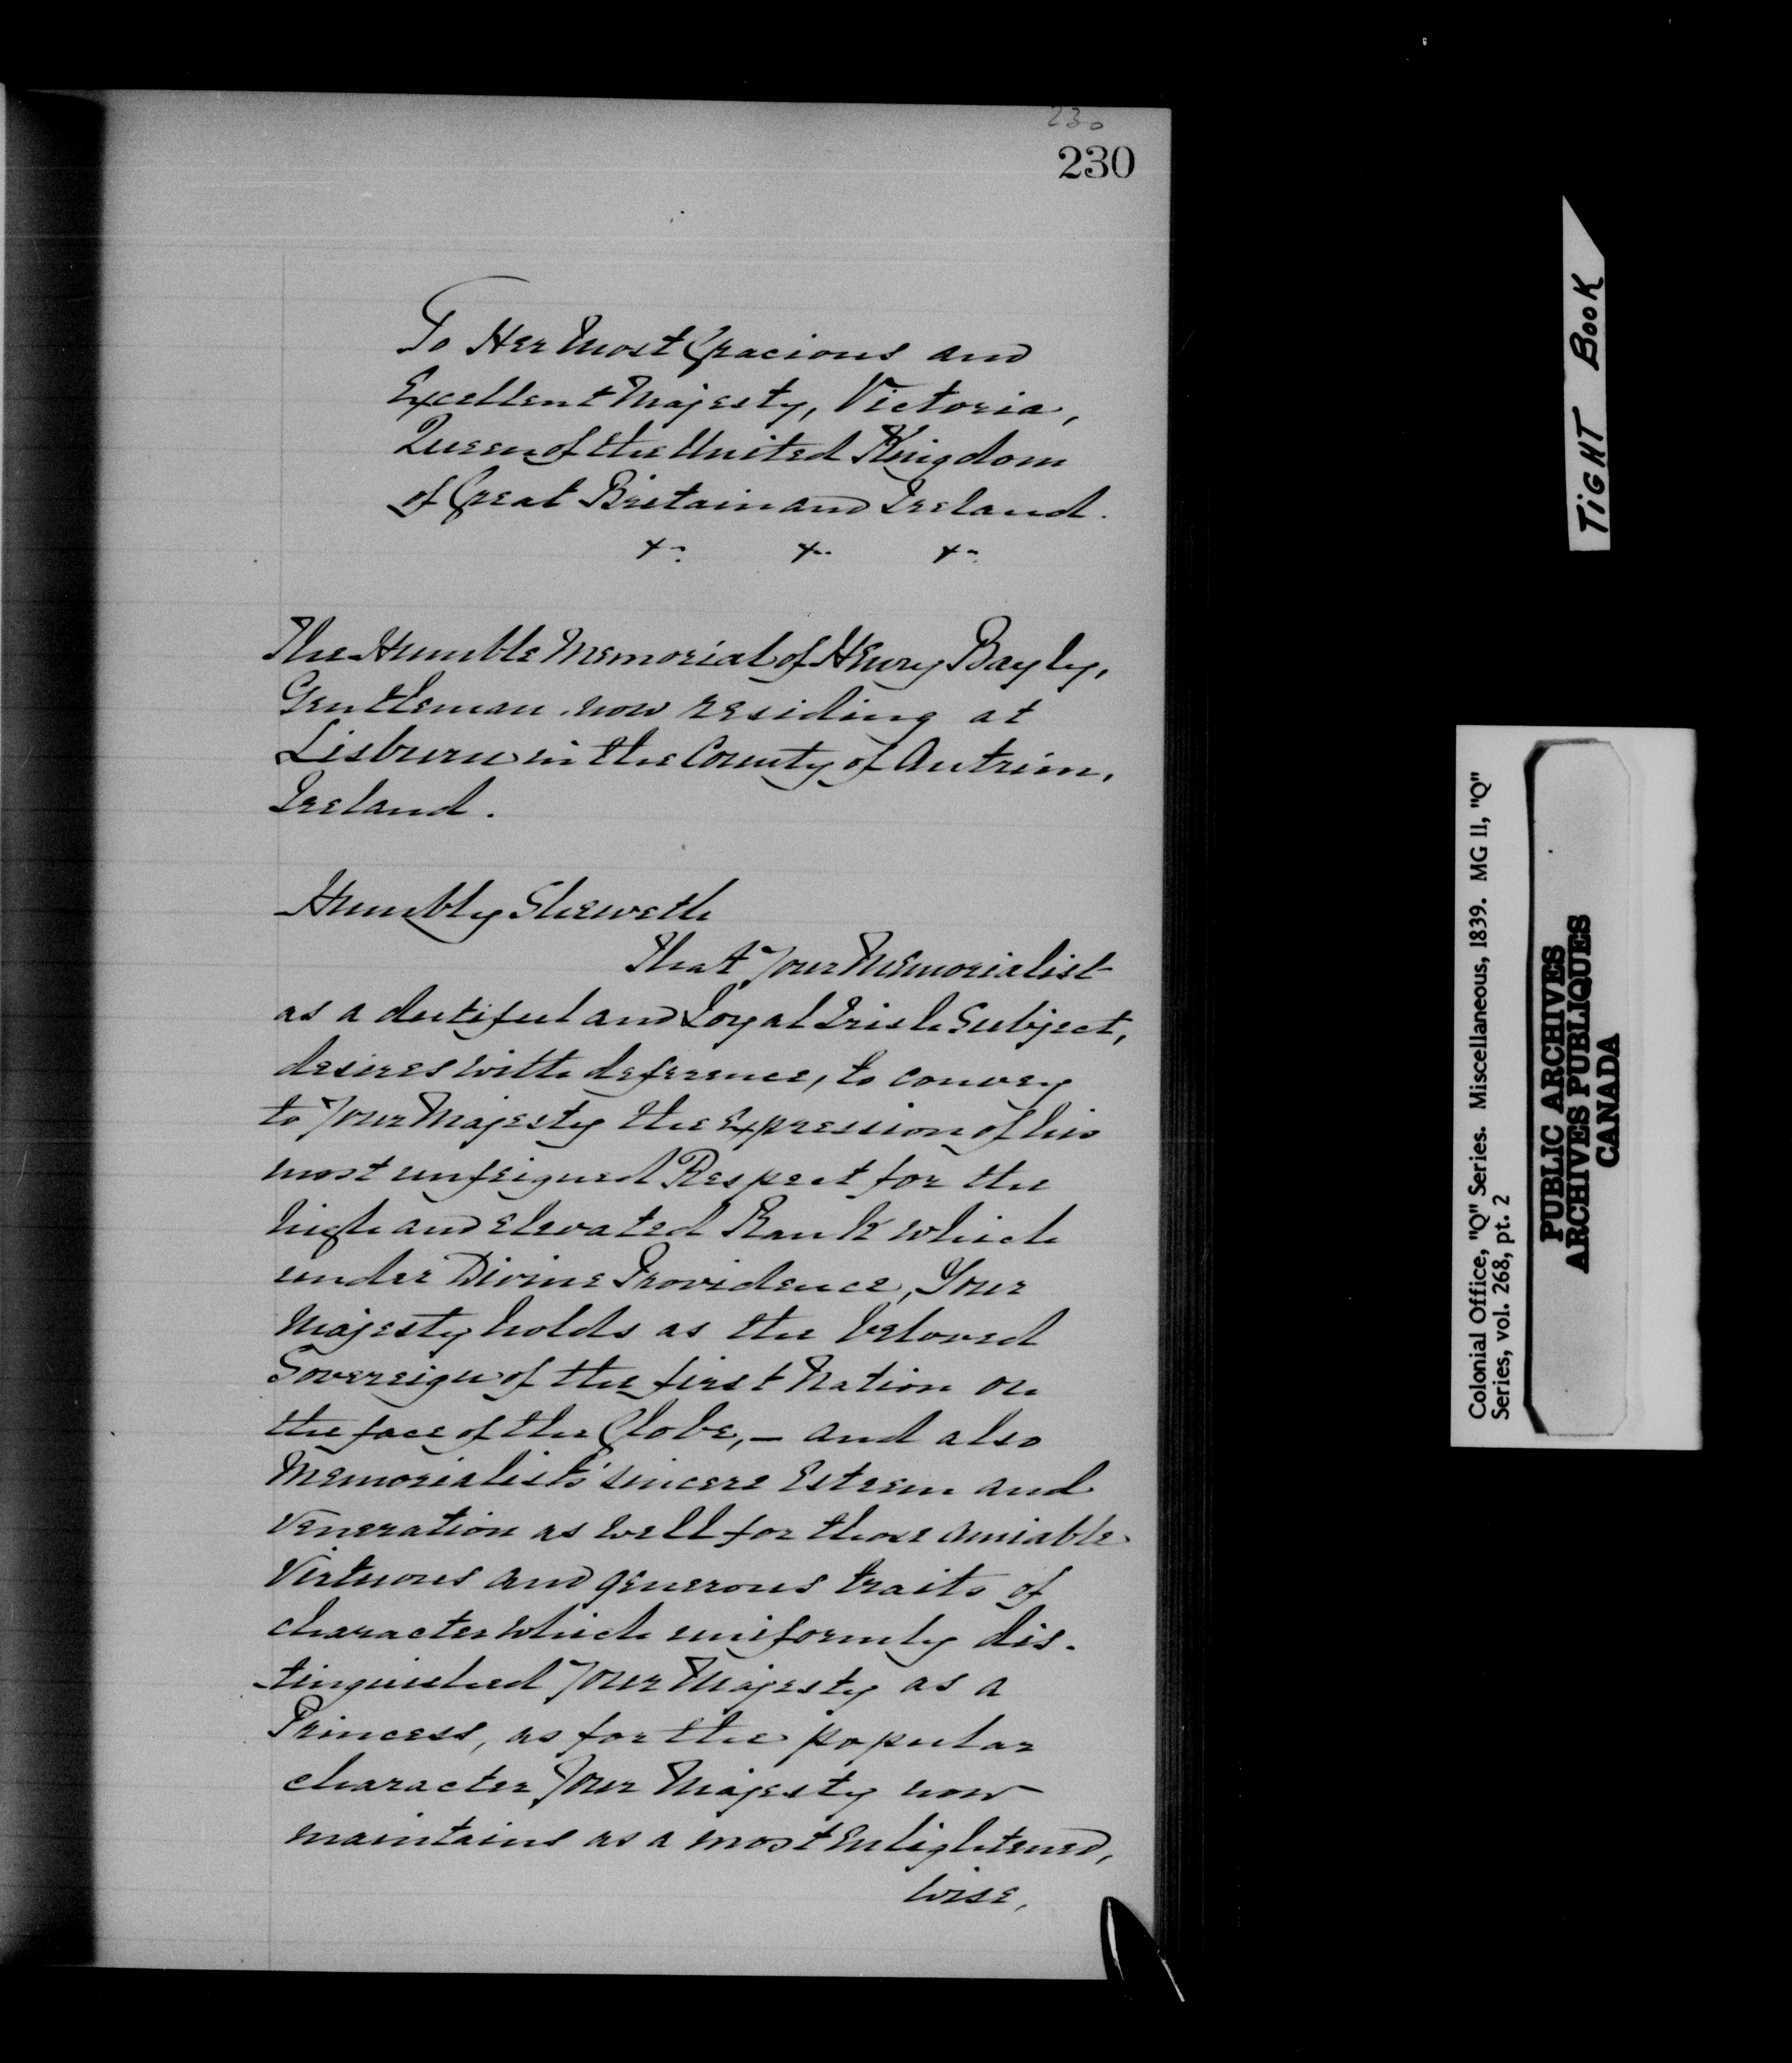 230
230
To Her Most Gracious and
Excellent Majesty, Victoria,
Queen of the United Kingdom
of Great Britain and Ireland.
The Humble Memorial of Henry Bayly,
Gentleman now residing at
Lisburn in the County of Antrim,
Ireland.
Humbly Sheweth
That Your Memorialist
as a dutiful and Loyal Irish Subject,
desires with deference, to convey
to Your Majesty the Expression of his
most unfeigned Respect for the
high and elevated Rank which
under Divine Providence, Your
Majesty holds as the beloved
Sovereign of the first Nation on
the face of the Globe, — and also
Memorialist's sincere Esteem and
Veneration as well for those amiable
Virtuous and generous traits of
character which uniformly dis-
tinguished Your Majesty as a
Princess, as for the popular
character Your Majesty now
maintains as a most Enlightened,
wise,
TIGHT BOOK
Colonial Office, "Q" Series. Miscellaneous, 1839. MG 11, "Q"
Series, vol. 268, pt. 2
PUBLIC ARCHIVES
ARCHIVES PUBLIQUES
CANADA